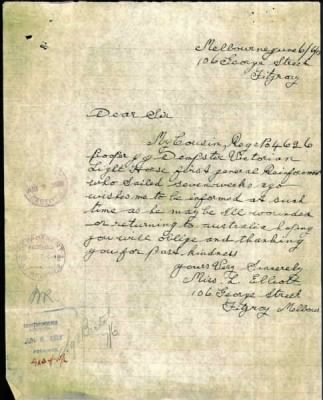 Melbourne June 6/6/
106 George Street
Fitzroy
Dear Sir
My Cousin, Reg No 4626
Trooper J G Dempster Victorian
Light Horse first general Reinforcment
who Sailed seven weeks ago
wishes me to be informed at such
time as he may be Ill wounded
or returning to Australia hoping
you will Oblige and thanking
you for past kindness
yours Very Sincerely
Miss L Elliott
106 George Street
Fitzroy Melbourne